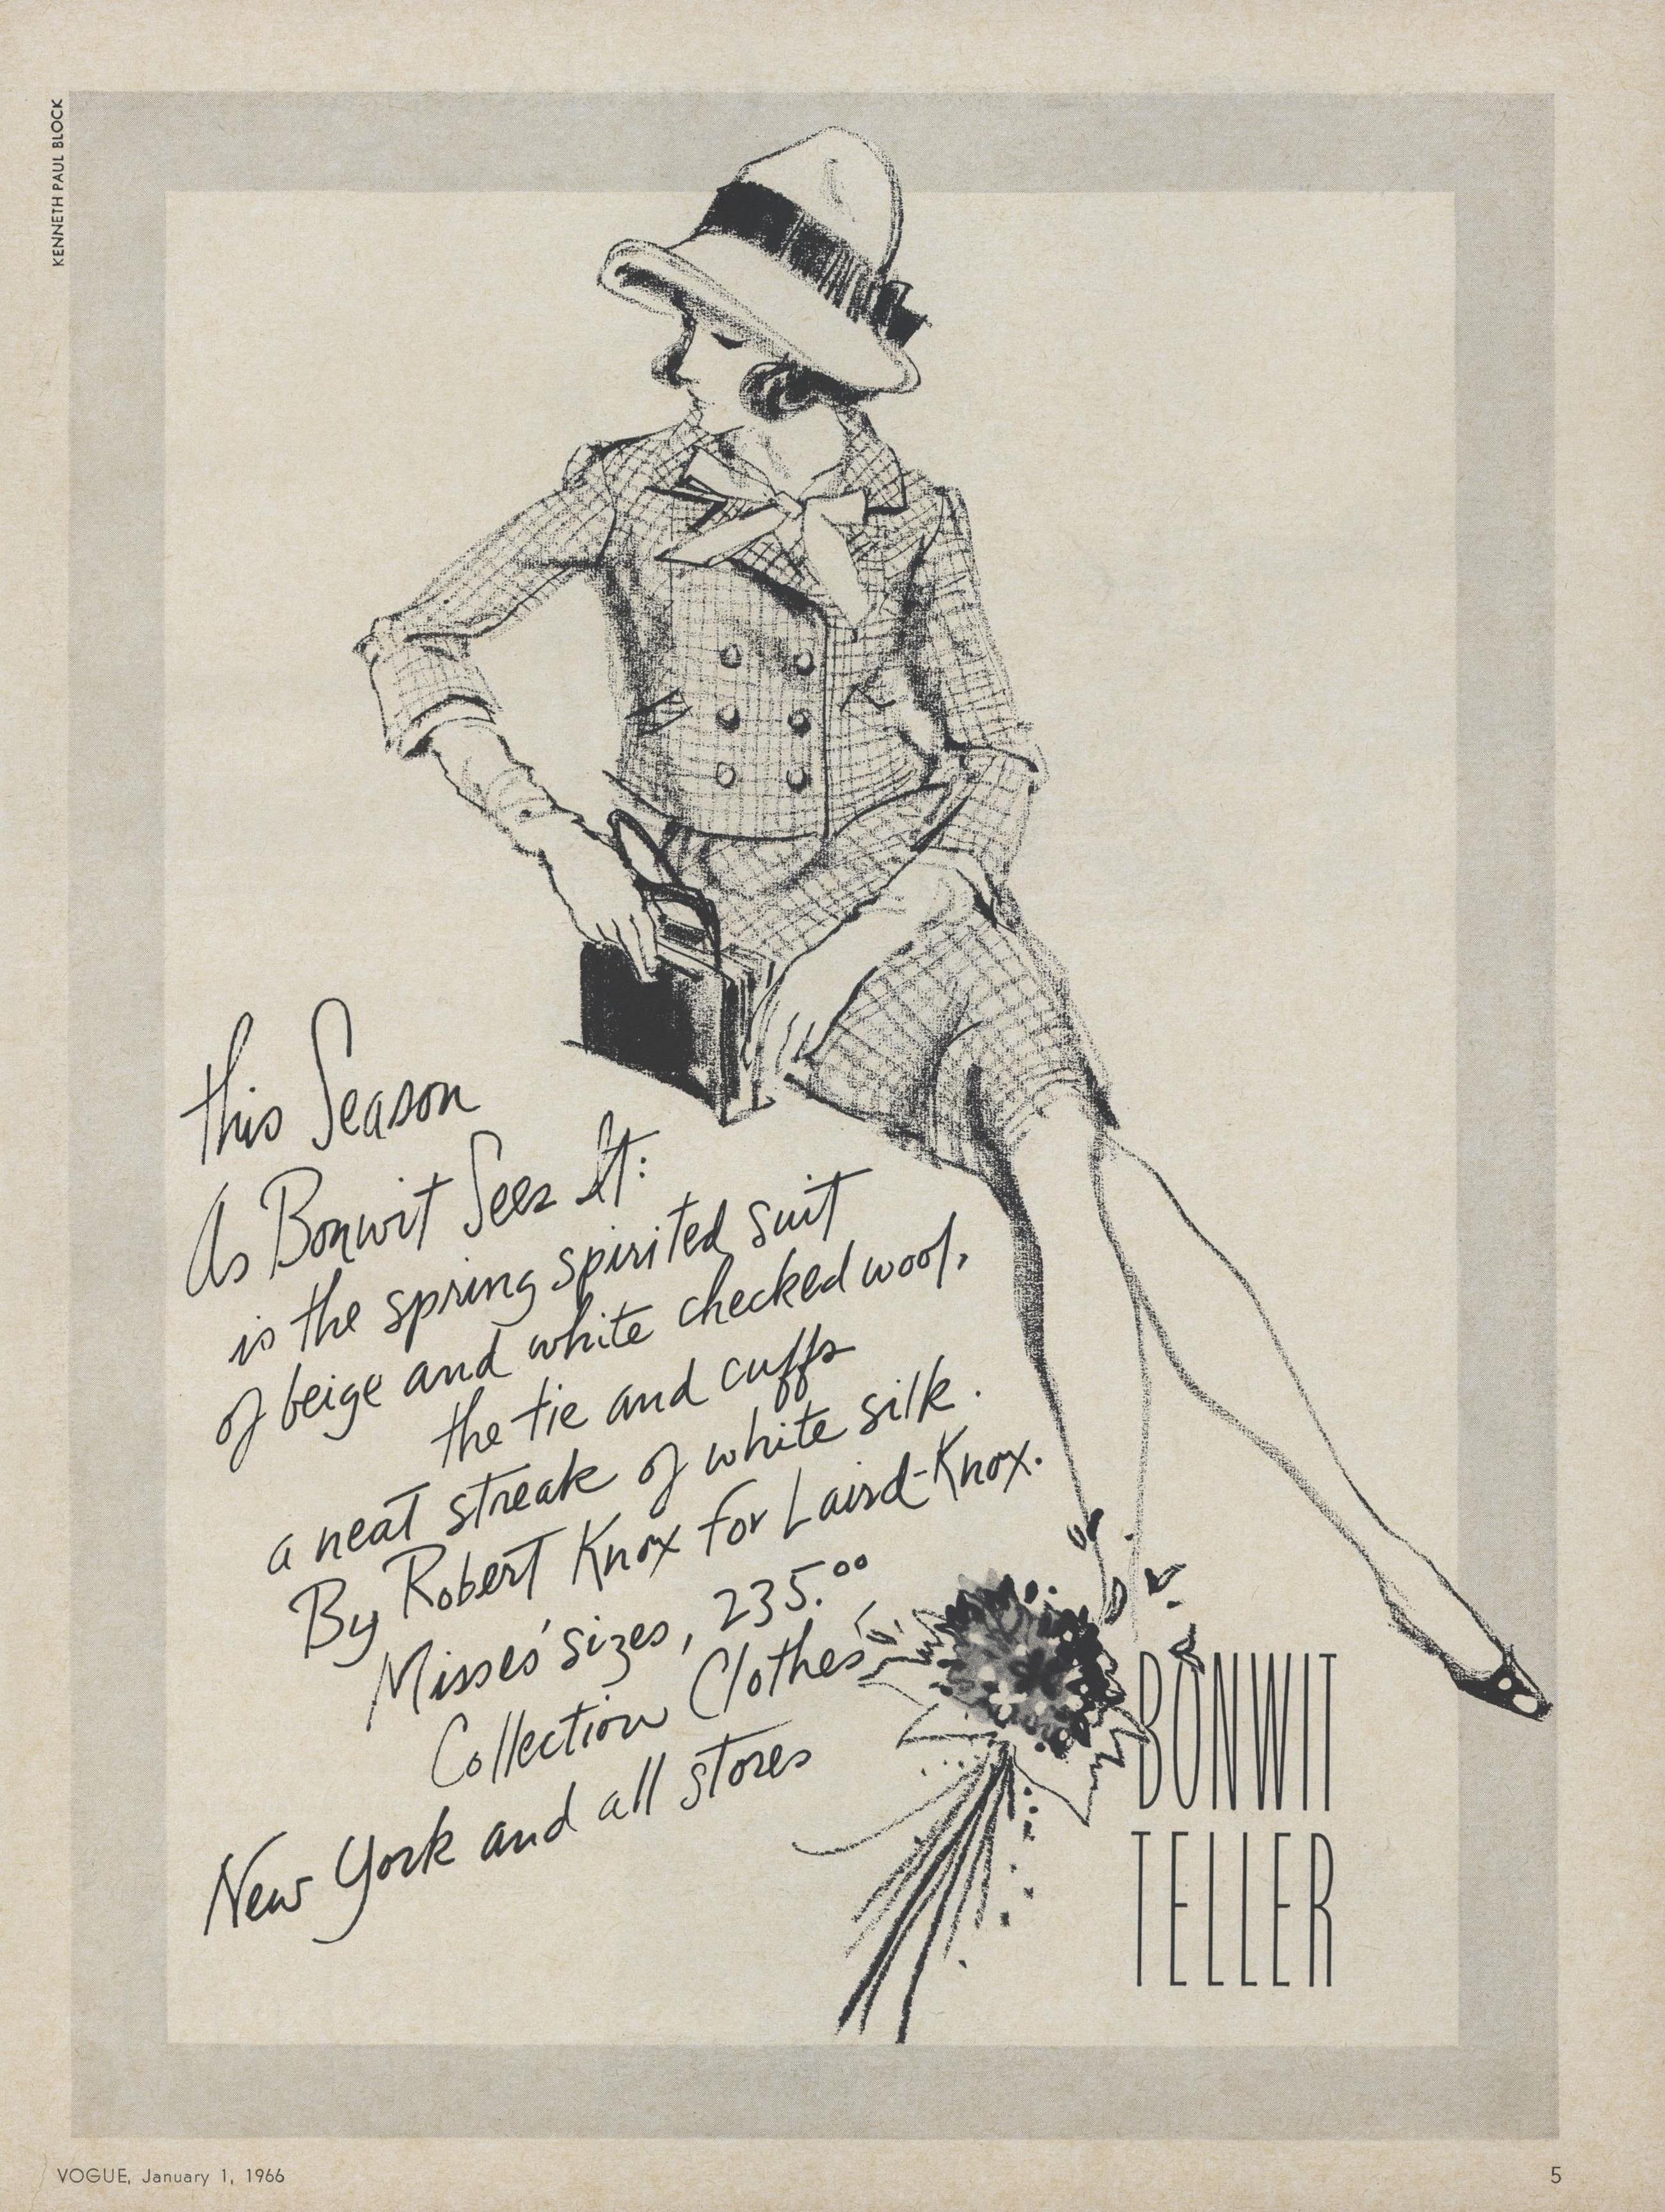 KENNETH PAUL BLOCK
this Season
As Bonwit Sees It:
is the spring spirited suit
of beige and white checked wool,
the tie and cuffs
a neat streak of white silk.
By Robert Knox for Laird-Knox.
Misses' sizes, 235.00
Collection Clothes
New York and all stores
BONWIT
TELLER
VOGUE, January 1, 1966
5